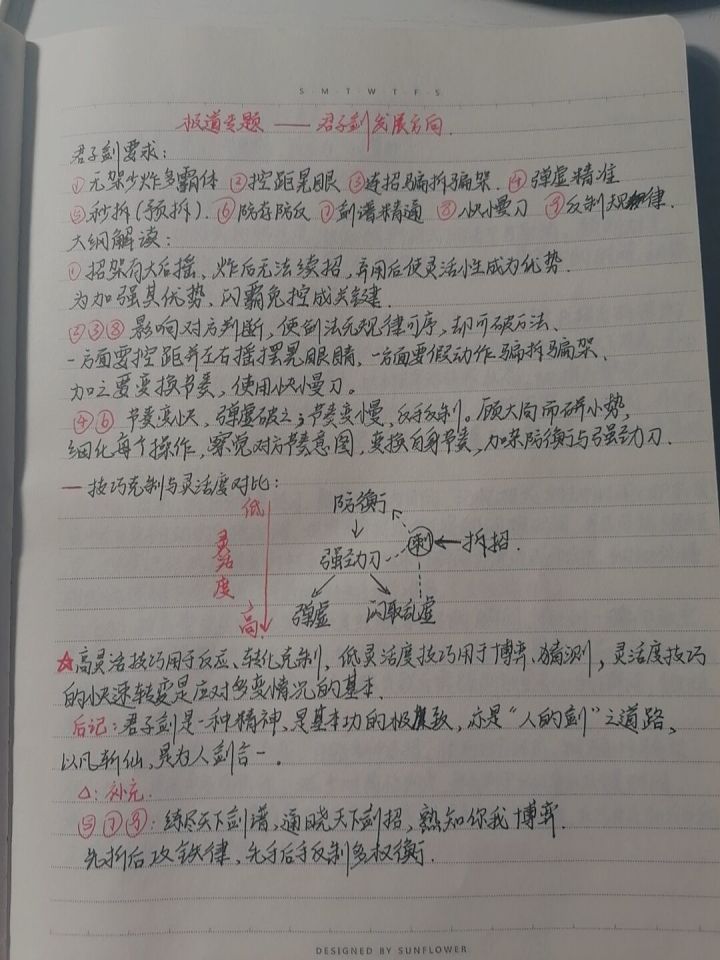 S M T W T F S
极道专题 —— 君子剑发展方向.
君子剑要求:
①无架少炸多霸体 ②控距晃眼 ③连招骗拆骗架. ④弹虚精准
⑤秒拆(预拆). ⑥防存防反 ⑦剑谱精通 ⑧快慢刀 ⑨反制规律.
大纲解读:
①招架有大后摇、炸后无法续招, 弃用后使灵活性成为优势.
为加强其优势, 闪霸免控成关键.
②③⑧影响对方判断, 使剑法无规律可序, 却可破万法、
一方面要控距并左右摇摆晃眼睛, 一方面要假动作骗拆骗架、
加之要变换节奏, 使用快慢刀。
④⑥节奏变快, 弹虚破之; 节奏变慢, 反手反制。顾大局而研小势,
细化每个操作, 察觉对方节奏意图, 变换自身节奏, 加杂防衡与强劲刀.
一 技巧克制与灵活度对比:
低 防衡
灵活度 强劲刀 刺 ← 拆招.
高 弹虚 闪取乱虚
☆高灵活技巧用于反应、转化克制, 低灵活度技巧用于博弈、猜测, 灵活度技巧
的快速转变是应对多变情况的基本.
后记: 君子剑是一种精神, 是基本功的极致, 亦是“人的剑”之道路,
以凡斩仙, 是为人剑合一。
△: 补充.
⑤⑦⑨: 练尽天下剑谱, 通晓天下剑招, 熟知你我博弈.
先拆后攻铁律, 先手后手反制多权衡.
DESIGNED BY SUNFLOWER